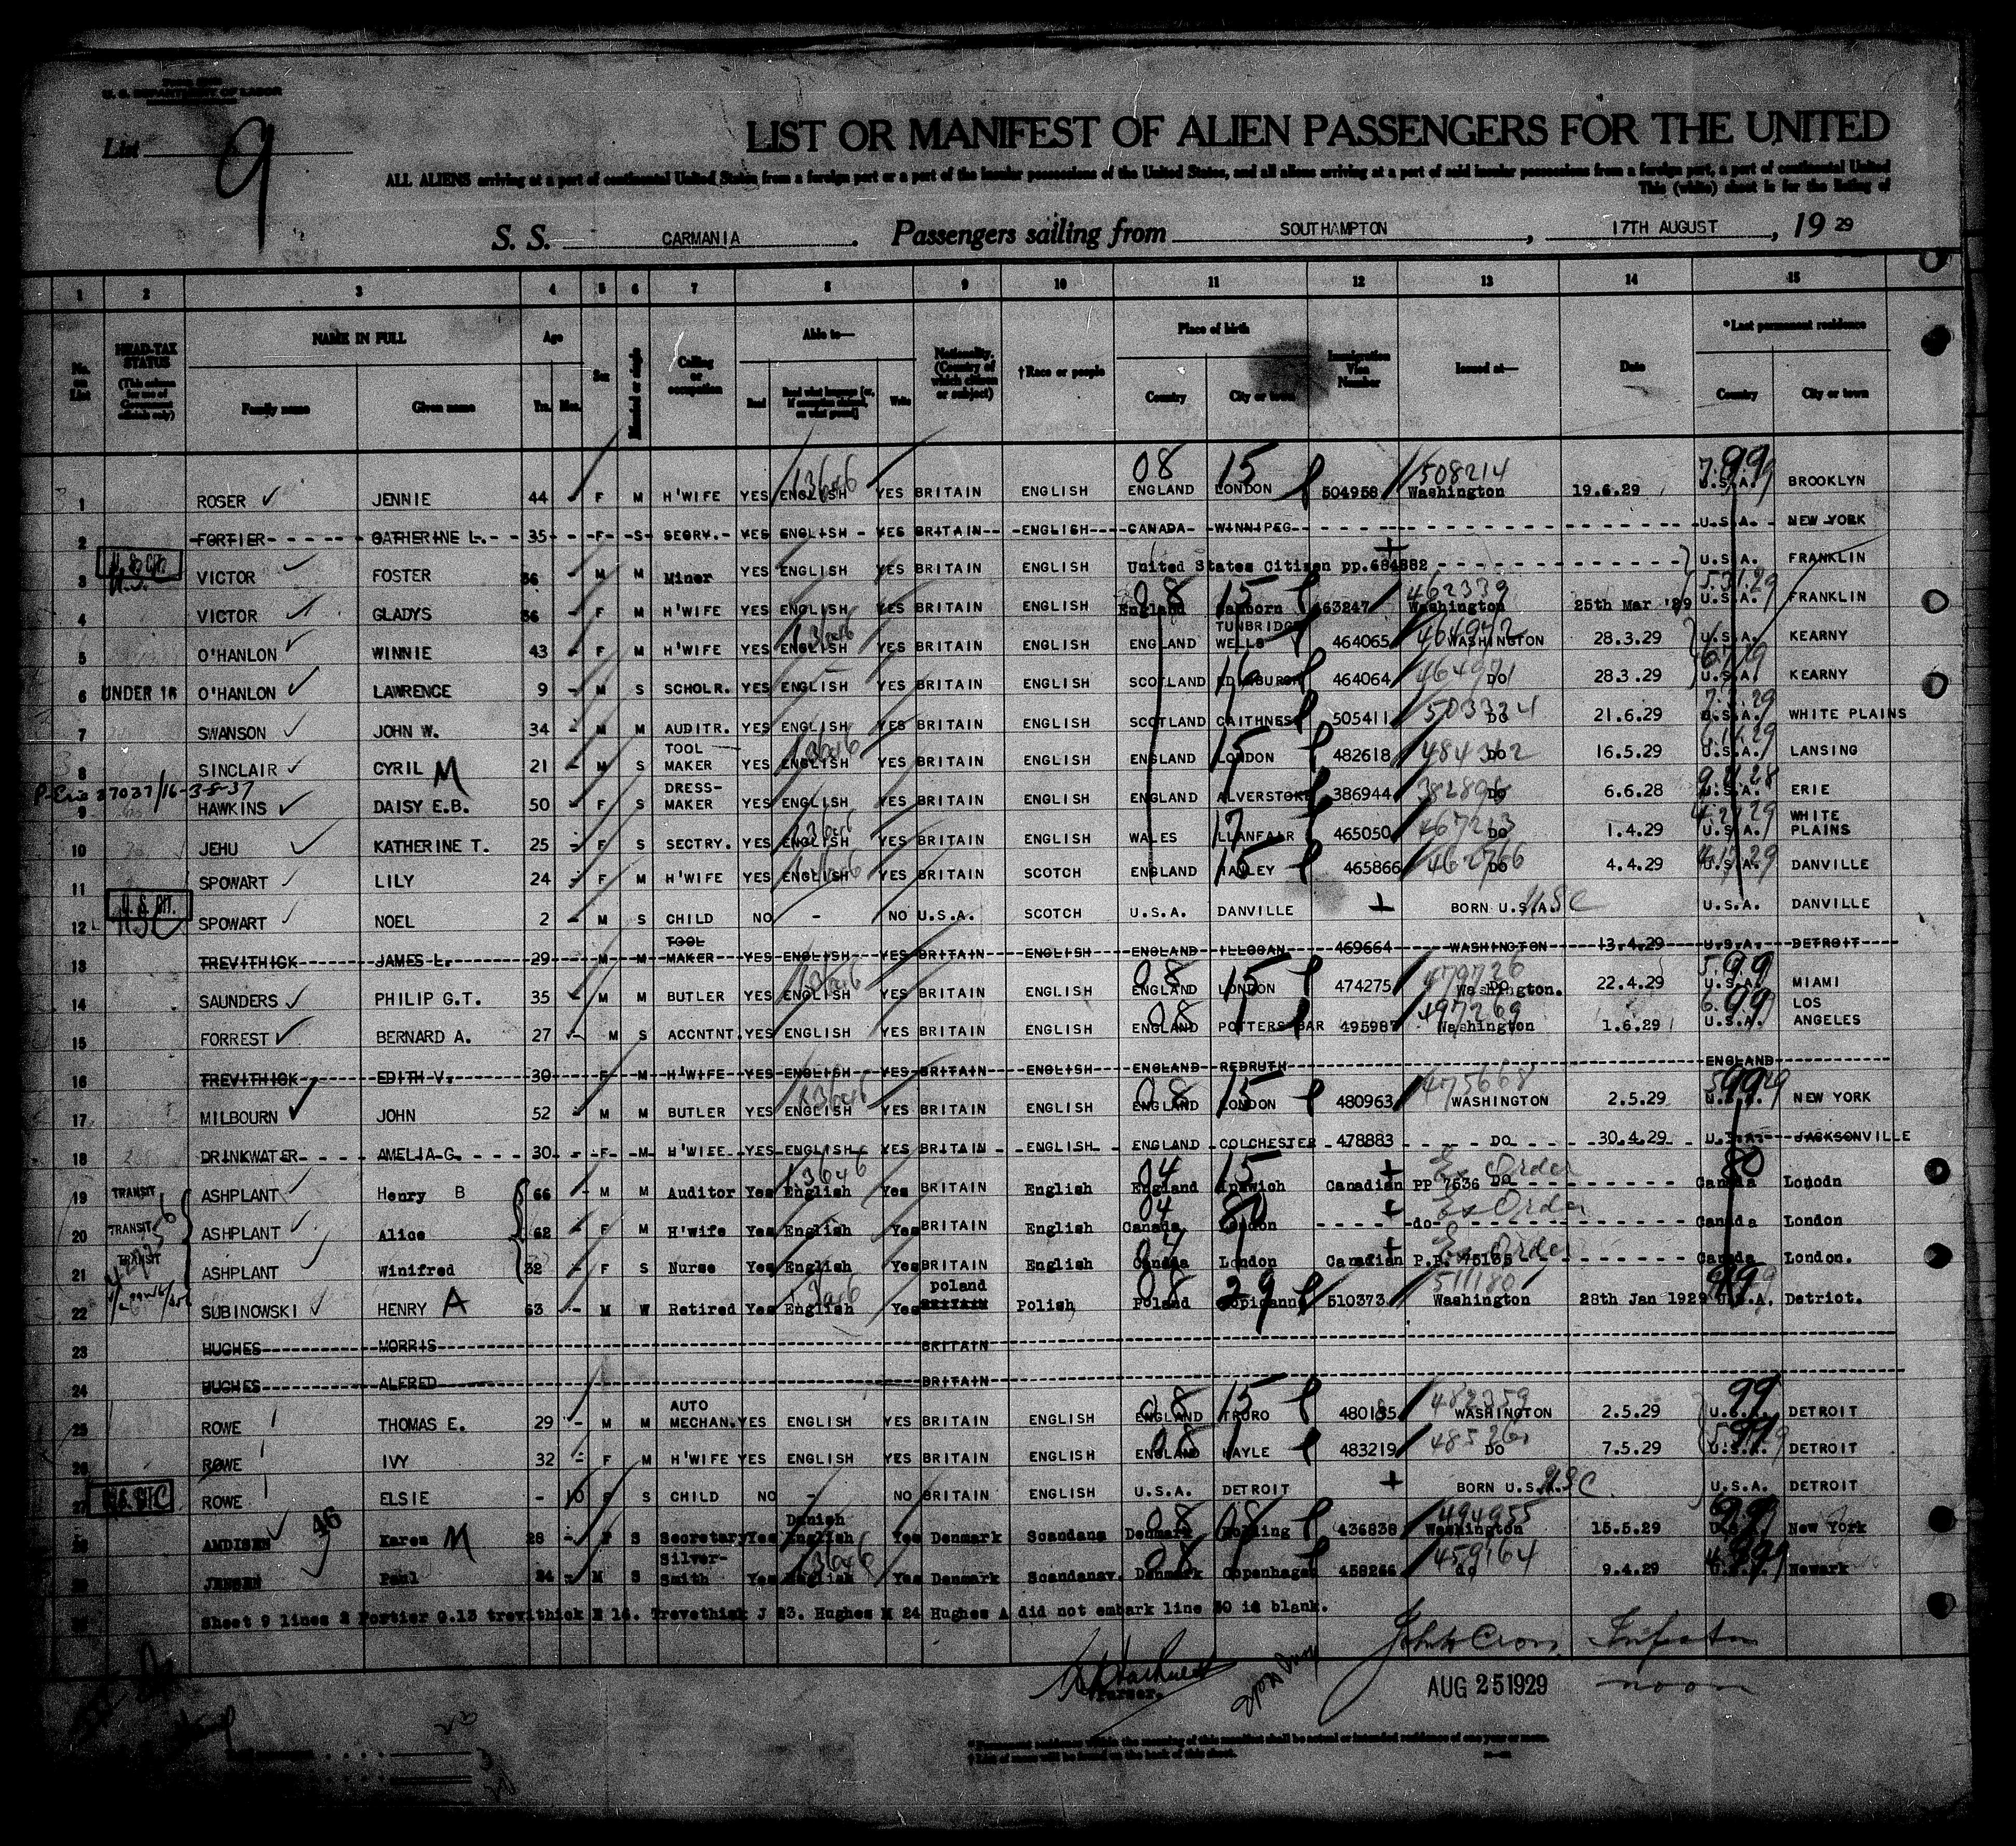 U. S. DEPARTMENT OF LABOR
List 9
LIST OR MANIFEST OF ALIEN PASSENGERS FOR THE UNITED
ALL ALIENS arriving at a port of continental United States from a foreign port or a port of the insular possessions of the United States, and all aliens arriving at a port of said insular possessions from a foreign port, a port of continental United
This (white) sheet is for the listing of
S. S. CARMANIA. Passengers sailing from SOUTHAMPTON, 17TH AUGUST, 19 29
1 2 3 4 5 6 7 8 9 10 11 12 13 14 15
No. on List HEAD-TAX STATUS (This column for use of Government officials only) NAME IN FULL Family name Given name Age Yrs. Mos. Sex Married or single Calling or occupation Able to— Read Read what language [or, if exemption claimed, on what ground] Write Nationality. (Country of which citizen or subject) †Race or people Place of birth Country City or town Immigration Visa Number Issued at— Date *Last permanent residence Country City or town
1 ROSER JENNIE 44 - F M H'WIFE YES ENGLISH YES BRITAIN ENGLISH ENGLAND LONDON 504958 508214 Washington 19.6.29 U.S.A. BROOKLYN
2 FORTIER CATHERINE L. 35 F S SECRY. YES ENGLISH YES BRITAIN ENGLISH CANADA WINNIPEG U.S.A. NEW YORK
3 U.S. CIT. VICTOR FOSTER 36 - M M Miner YES ENGLISH YES BRITAIN ENGLISH United States Citizen pp.684882 U.S.A. FRANKLIN
4 VICTOR GLADYS 36 - F M H'WIFE YES ENGLISH YES BRITAIN ENGLISH England 463247 462339 Washington 25th Mar '29 U.S.A. FRANKLIN
5 O'HANLON WINNIE 43 - F M H'WIFE YES ENGLISH YES BRITAIN ENGLISH ENGLAND TUNBRIDGE WELLS 464065 WASHINGTON 28.3.29 U.S.A. KEARNY
6 UNDER 16 O'HANLON LAWRENCE 9 - M S SCHOLR. YES ENGLISH YES BRITAIN ENGLISH SCOTLAND EDINBURGH 464064 464971 DO 28.3.29 U.S.A. KEARNY
7 SWANSON JOHN W. 34 - M M AUDITR. YES ENGLISH YES BRITAIN ENGLISH SCOTLAND CAITHNESS 505411 DO 21.6.29 U.S.A. WHITE PLAINS
8 SINCLAIR CYRIL M 21 - M S TOOL MAKER YES ENGLISH YES BRITAIN ENGLISH ENGLAND LONDON 482618 DO 16.5.29 U.S.A. LANSING
9 HAWKINS DAISY E.B. 50 - F S DRESS-MAKER YES ENGLISH YES BRITAIN ENGLISH ENGLAND ALVERSTOKE 386944 DO 6.6.28 U.S.A. ERIE
10 JEHU KATHERINE T. 25 - F S SECTRY. YES ENGLISH YES BRITAIN ENGLISH WALES LLANFAIR 465050 467213 DO 1.4.29 U.S.A. WHITE PLAINS
11 SPOWART LILY 24 - F M H'WIFE YES ENGLISH YES BRITAIN SCOTCH ENGLAND HANLEY 465866 DO 4.4.29 U.S.A. DANVILLE
12 U.S. CIT. SPOWART NOEL 2 - M S CHILD NO - NO U.S.A. SCOTCH U.S.A. DANVILLE BORN U.S.A. USC U.S.A. DANVILLE
13 TREVITHICK JAMES L. 29 M M TOOL MAKER YES ENGLISH YES BRITAIN ENGLISH ENGLAND ILLOGAN 469664 WASHINGTON 13.4.29 U.S.A. DETROIT
14 SAUNDERS PHILIP G.T. 35 - M M BUTLER YES ENGLISH YES BRITAIN ENGLISH ENGLAND LONDON 474275 Washington. 22.4.29 U.S.A. MIAMI
15 FORREST BERNARD A. 27 - M S ACCNTNT. YES ENGLISH YES BRITAIN ENGLISH ENGLAND POTTERS BAR 495987 497269 Washington 1.6.29 U.S.A. LOS ANGELES
16 TREVITHICK EDITH V. 30 F M H'WIFE YES ENGLISH YES BRITAIN ENGLISH ENGLAND REDRUTH ENGLAND
17 MILBOURN JOHN 52 - M M BUTLER YES ENGLISH YES BRITAIN ENGLISH ENGLAND LONDON 480963 475668 WASHINGTON 2.5.29 U.S.A. NEW YORK
18 DRINKWATER AMELIA G. 30 F M H'WIFE YES ENGLISH YES BRITAIN ENGLISH ENGLAND COLCHESTER 478883 DO 30.4.29 U.S.A. JACKSONVILLE
19 TRANSIT ASHPLANT Henry B 66 - M M Auditor Yes English Yes BRITAIN English England Ipswich Canadian PP 7636 Ex Order Canada Lonodn
20 TRANSIT ASHPLANT Alice 62 - F M H'wife Yes English Yes BRITAIN English Canada London -do- Ex Order Canada London
21 TRANSIT ASHPLANT Winifred 32 - F S Nurse Yes English Yes BRITAIN English Canada London Canadian P.P. 75165 Ex Order Canada London.
22 SUBINOWSKI HENRY A 63 - M W Retired Yes English Yes poland BRITAIN Polish Poland 510373 511180 Washington 28th Jan 1929 U.S.A. Detriot.
23 HUGHES MORRIS BRITAIN
24 HUGHES ALFRED BRITAIN
25 ROWE THOMAS E. 29 - M M AUTO MECHAN. YES ENGLISH YES BRITAIN ENGLISH ENGLAND TRURO 480135 482359 WASHINGTON 2.5.29 U.S.A. DETROIT
26 ROWE IVY 32 - F M H'WIFE YES ENGLISH YES BRITAIN ENGLISH ENGLAND HAYLE 483219 DO 7.5.29 U.S.A. DETROIT
27 ROWE ELSIE - 10 F S CHILD NO - NO BRITAIN ENGLISH U.S.A. DETROIT BORN U.S.A. USC U.S.A. DETROIT
28 AMDISEN Karen M 28 - F S Secretary Yes Danish English Yes Denmark Scandana Denmark Kolding 436838 494955 Washington 15.5.29 U.S.A. New York
29 JENSEN Paul 24 - M S Silver-Smith Yes English Yes Denmark Scandanav. Denmark Copenhagen 458266 459164 do 9.4.29 U.S.A. Newark
Sheet 9 lines 2 Fortier C.13 trevithick E 16. Trevethick J 23. Hughes M 24 Hughes A did not embark line 30 is blank.
Purser.
AUG 25 1929 noon
*Permanent residence within the meaning of this manifest shall be actual or intended residence of one year or more.
†List of races will be found on the back of this sheet.